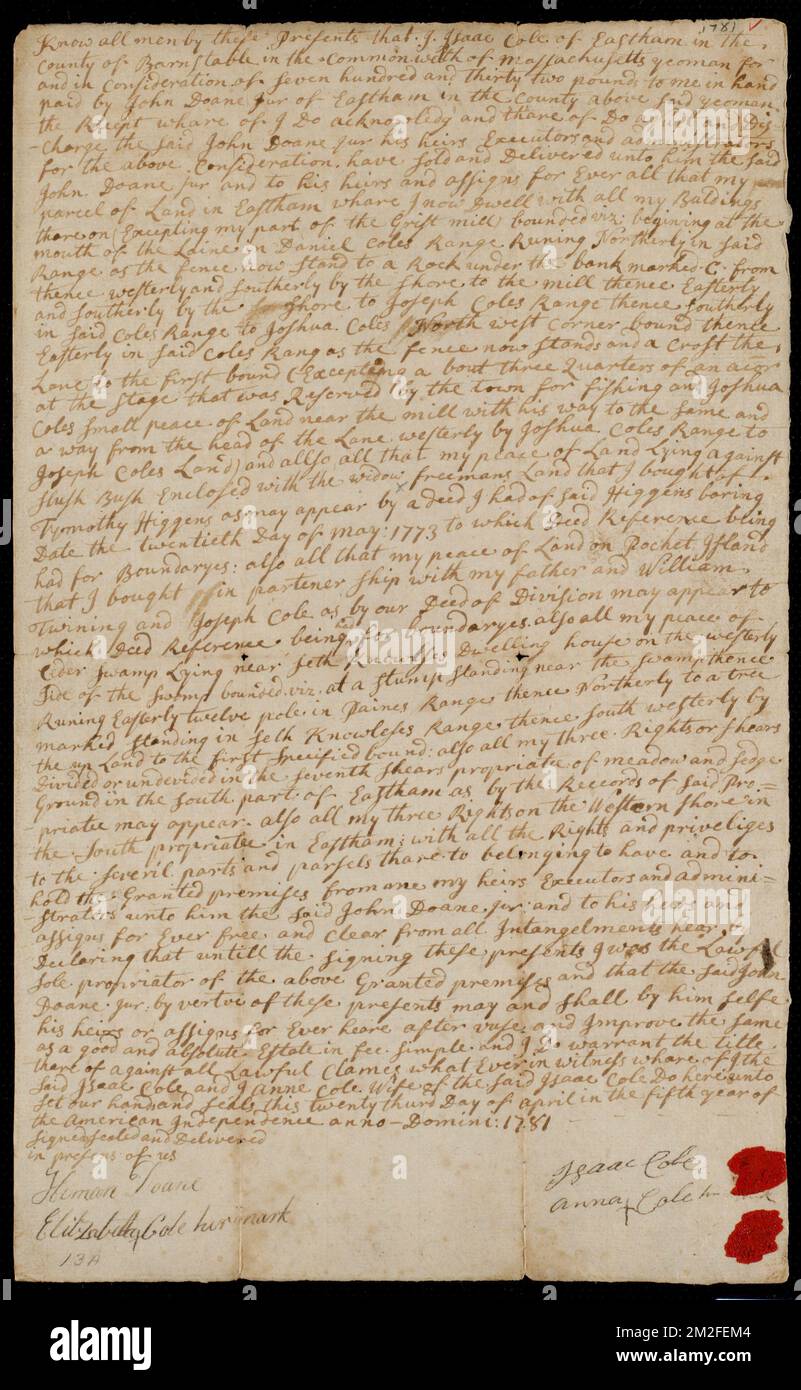 1781
Know all men by these Presents that. I. Isaac Cole of Eastham in the
County of Barnstable in the Commonwelth of Massachusetts yeoman for
and in Consideration of Seven hundred and thirty two pounds to me in hand
paid by John Doane Jur of Eastham in the County above said yeoman
the Recipt whare of I Do acknoledg and thare of Do and Dis=
-charge the said John Doane Jur his heirs Executors and administrators
for the above Consideration. have sold and Delivered unto him the said
John Doane Jur and to his heirs and assigns for Ever all that my
parcel of Land in Eastham whare I now Dwell with all my Buldings
thare on (Excepting my part of the Grist mill) bounded viz: begining at the
mouth of the Laine in Daniel Coles Range Runing Northerly in said
Range as the fence now Stand to a Rock under the bank marked C. from
thence westerly and Southerly by the Shore to the mill thence Easterly
and Southerly by the Shore to Joseph Coles Range thence Southerly
in said Coles Range to Joshua. Coles North west Corner bound thence
Easterly in said Coles Rang as the fence now Stands and a Crost the
Lane to the first bound (Excepting a bout three Quarters of an acer
at the Stage that was Reserved by the town for fishing and Joshua
Coles Small peace of Land near the mill with his way to the Same and
a way from the head of the Lane westerly by Joshua Coles Range to
Joseph Coles Land) and allso all that my peace of Land Lying against
Slush Bush Enclosed with the widow freemans Land that I bought of
Tymothy Higgens as may appear by a deed I had of said Higgens baring
Date the twentieth Day of may: 1773 to which Deed Reference being
had for Boundaryes: also all that my peace of Land on Pochet Island
that I bought in partener Ship with my father and William
Twining and Joseph Cole as by our Deed of Division may appear to
which Deed Reference being had for boundaryes also all my peace of
Ceder Swamp Lying near Seth Knowlses Dwelling house on the westerly
Side of the Swamp bounded viz. at a Stump Standing near the Swamp thence
Runing Easterly twelve pole in Paines Range thence Northerly to a tree
marked Standing in Seth Knowleses Range thence South westerly by
the up Land to the first Specified bound: also all my three Rights or Shears
Divided or undevided in the Seventh Shears propriate of meadow and Sedge
Ground in the South part of Eastham as by the Records of Said Pro=
-priate may appear. also all my three Rights on the Western Shore in
the South propriate in Eastham; with all the Rights and priveliges
to the Severil parts and parsels thare to belonging to have and to
hold the Granted premises from me my heirs Executors and admini=
-Strators unto him the Said John Doane. jur: and to his heirs and
assigns for Ever free and Clear from all Intangelments
Declaring that untill the Signing these presents I was the Lawful
Sole propriator of the above Granted premises and that the Said John
Doane Jur: by vertue of these presents may and Shall by him Selfe
his heirs or assigns for Ever heare after vuse. and Improve the Same
as a good and absolute Estate in fee Simple. and I Do warrant the title
thare of against all Lawful Clames what Ever in witness whare of I the
Said Isaac Cole and I Anne Cole Wife of the Said Isaac Cole Do here unto
Set our hands and Seals this twenty third Day of april in the fifth year of
the American Independence anno-Domini: 1781
Signed Sealed and Delivered
in presens of us
Isaac Cole
Heman Doane
Anna Cole
Elizabeth Cole hur mark
13A
alamy
Image ID: 2M2FEM4
www.alamy.com